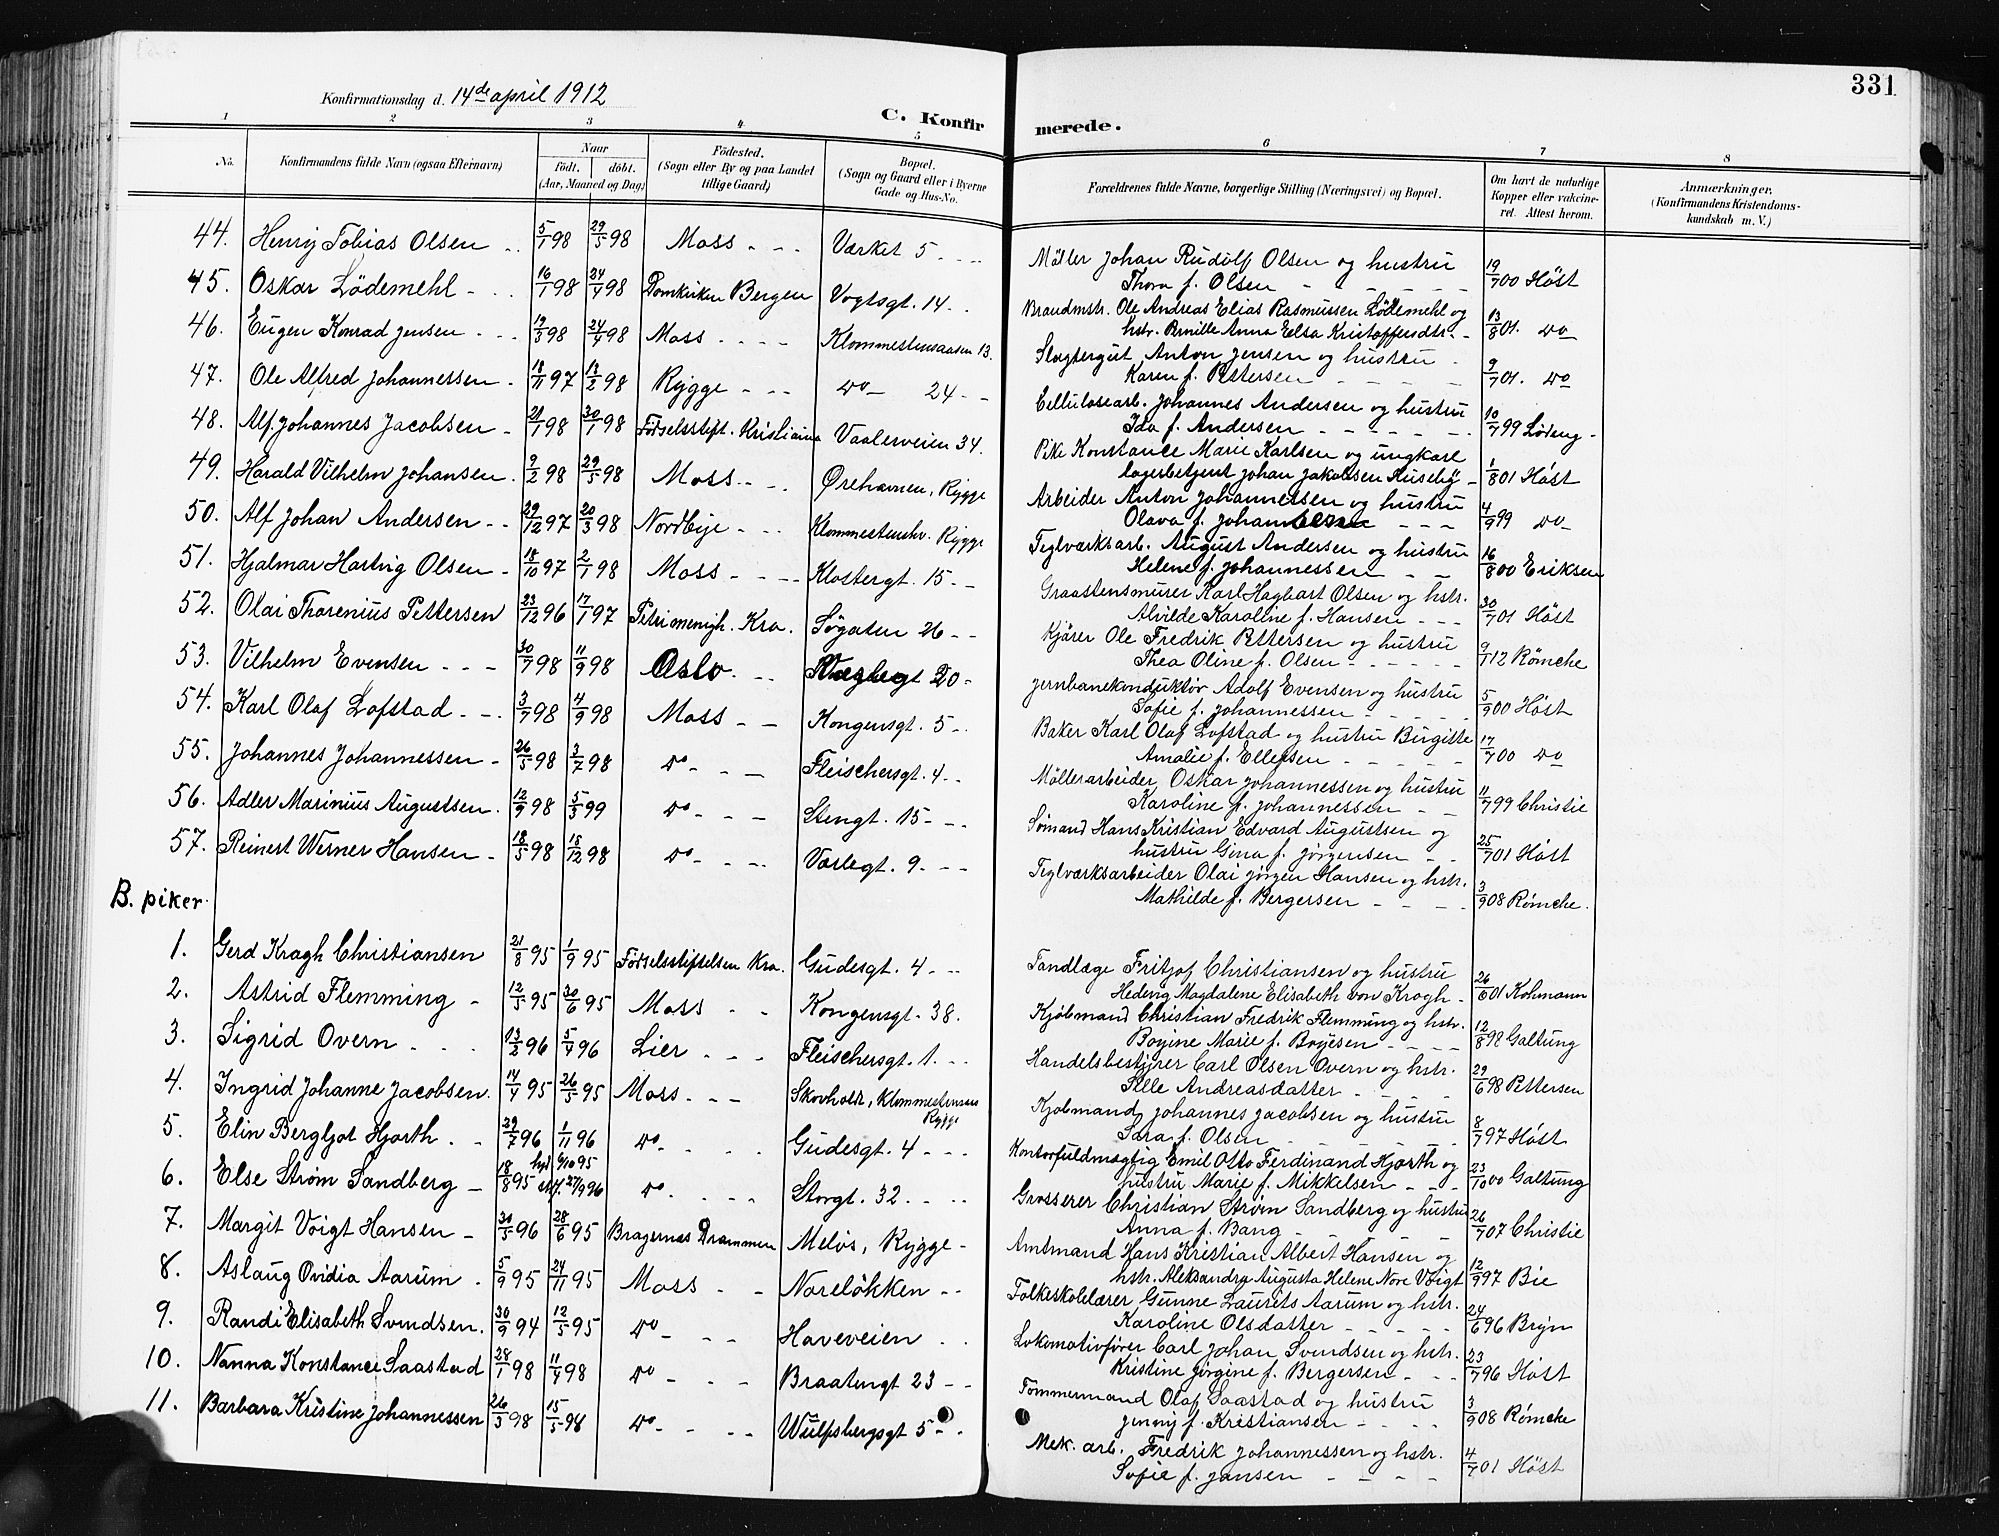 331
Konfirmationsdag d. 14de april 1912
C. Konfirmerede.
1 2 3 4 5 6 7 8
No. Konfirmandens fulde Navn (ogsaa Efternavn) Naar födt. döbt. (Aar, Maaned og Dag) Födested. (Sogn eller By og paa Landet tillige Gaard) Bopæl. (Sogn og Gaard eller i Byerne Gade og Hus-No. Forældrenes fulde Navne, borgerlige Stilling (Næringsvei) og Bopæl. Om havt de naturlige Kopper eller vakcineret. Attest herom. Anmærkninger. (Konfirmandens Kristendomskundskab m. V.)
44. Henrij Tobias Olsen 5/1 98 29/5 98 Moss Værket 5 Möller Johan Rudolf Olsen og hustru Thora f. Olsen 19/7 00 Höst
45. Oskar Lödemehl 16/1 98 24/4 98 Domkirken Bergen Vogtsgt. 14 Brandmstr. Ole Andreas Elias Rasmussen Lödemehl og hstr. Brnille Anna Elsa Kristoffersdtr. 13/8 01. do
46. Eugen Konrad Jensen 19/3 98 24/4 98 Moss Klommestensaasen 13. Slagtergut Anton Jensen og hustru Karen f. Pettersen 9/7 01. do
47. Ole Alfred Johannessen 18/11 97 13/2 98 Rygge do 24 Cellulosearb. Johannes Andersen og hustru Ida f. Andersen 10/7 99 Lödeng
48. Alf Johannes Jacobsen 21/1 98 30/1 98 Födselsstift. Kristiania Vaalerveien 34. Pike Konstance Marie Karlsen og ungkarl lagerbetjent Johan Jakobsen Huseby 1/8 01 Höst
49. Harald Vilhelm Johansen 9/2 98 29/5 98 Moss Ørehavnen, Rygge Arbeider Anton Johannessen og hustru Olava f. Johannessen 4/9 99 do
50. Alf Johan Andersen 29/12 97 20/3 98 Nordbye Klommestenshv. Rygge Teglværksarb. August Andersen og hustru Helene f. Johannessen 16/8 00 Eriksen
51. Hjalmar Hartvig Olsen 18/10 97 2/1 98 Moss Klostergt. 15 Graastensmurer Karl Hagbart Olsen og hstr. Alvilde Karoline f. Hansen 30/7 01 Höst
52. Olai Thorenius Pettersen 23/12 96 17/1 97 Petri menigh. Kra. Søgaten 26 Kjörer Ole Fredrik Pettersen og hustru Thea Oline f. Olsen 9/1 12 Römcke
53. Vilhelm Evensen 30/7 98 11/9 98 Oslo 20 Jernbanekonduktör Adolf Evensen og hustru Sofie f. Johannessen 5/9 00 Höst
54. Karl Olaf Lofstad 3/7 98 4/9 98 Moss Kongensgt. 5 Baker Karl Olaf Lofstad og hustru Birgitte Amalie f. Ellefsen 17/7 00 do
55. Johannes Johannessen 26/5 98 3/7 98 do Fleischersgt. 4 Möllerarbeider Oskar Johannessen og hustru Karoline f. Johannessen 11/7 99 Christie
56. Adler Marinius Augustsen 12/9 98 5/3 99 do Stengt. 15 Sømand Hans Kristian Edvard Augustsen og hustru Gina f. Jörgensen 25/7 01 Höst
57. Reinert Werner Hansen 18/5 98 18/12 98 do Varlegt. 9 Teglværksarbeider Olai Jörgen Hansen og hstr. Mathilde f. Bergersen 3/9 08 Römcke.
B. piker
1. Gerd Kragh Christiansen 21/8 95 1/9 95 Fødselsstiftelsen Kra. Gudesgt. 4 Tandlæge Fritjof Christiansen og hustru Hedevig Magdalene Elisabeth von Krogh 26/6 01 Kohmann
2. Astrid Flemming 12/5 95 30/6 95 Moss Kongensgt. 38. Kjöbmand Christian Fredrik Flemming og hstr. Boyine Marie f. Boyesen 12/8 98 Galtung
3. Sigrid Overn 13/2 96 5/4 96 Lier Fleischersgt. 1. Handelsbestyrer Carl Olsen Overn og hstr. Andreasdatter 29/6 98 Pettersen
4. Ingrid Johanne Jacobsen. 14/4 95 26/5 95 Moss Skovholdt, Klommestensaas Rygge Kjöbmand Johannes Jacobsen og hustru Sara f. Olsen 8/7 97 Höst
5. Elin Bergljot Hjorth 29/7 96 1/11 96 do Gudesgt. 4 Kontorfuldmægtig Emil Otto Ferdinand Hjorth og hustru Marie f. Mikkelsen 23/10 00 Galtung
6. Else Strøm Sandberg 18/8 95 6/10 95 27/9 96 do Storgt. 32 Grosserer Christian Strøm Sandberg og hustru Anna f. Bang 26/7 07 Christie
7. Margit Voigt Hansen 30/5 96 28/6 95 Bragernes Drammen Meløs, Rygge Amtmand Hans Kristian Albert Hansen og hstr. Aleksandra Augusta Helene Nore Voigt 12/9 97 Bie
8. Aslaug Ovidia Aarum 5/9 95 24/11 95 Moss Noreløkken Folkeskolelærer Gunne Laurits Aarum og hstr. Karoline Olsdatter 24/6 96 Bryn
9. Randi Elisabeth Svendsen. 30/9 94 12/5 95 do Haveveien Lokomotivfører Carl Johan Svendsen og hstr. Kristine Jörgine f. Bergersen 23/7 96 Höst
10. Nanna Konstance Saastad 28/1 98 11/4 98 do Braatengt 23 Tömmermand Olaf Saastad og hustru Jenny f. Kristiansen 3/9 08 Römcke
11. Barbara Kristine Johannessen 26/3 98 15/5 98 do Wulfsbergsgt 5 Mek. arb. Fredrik Johannessen og hstr. Sofie f. Jansen 4/7 01 Höst